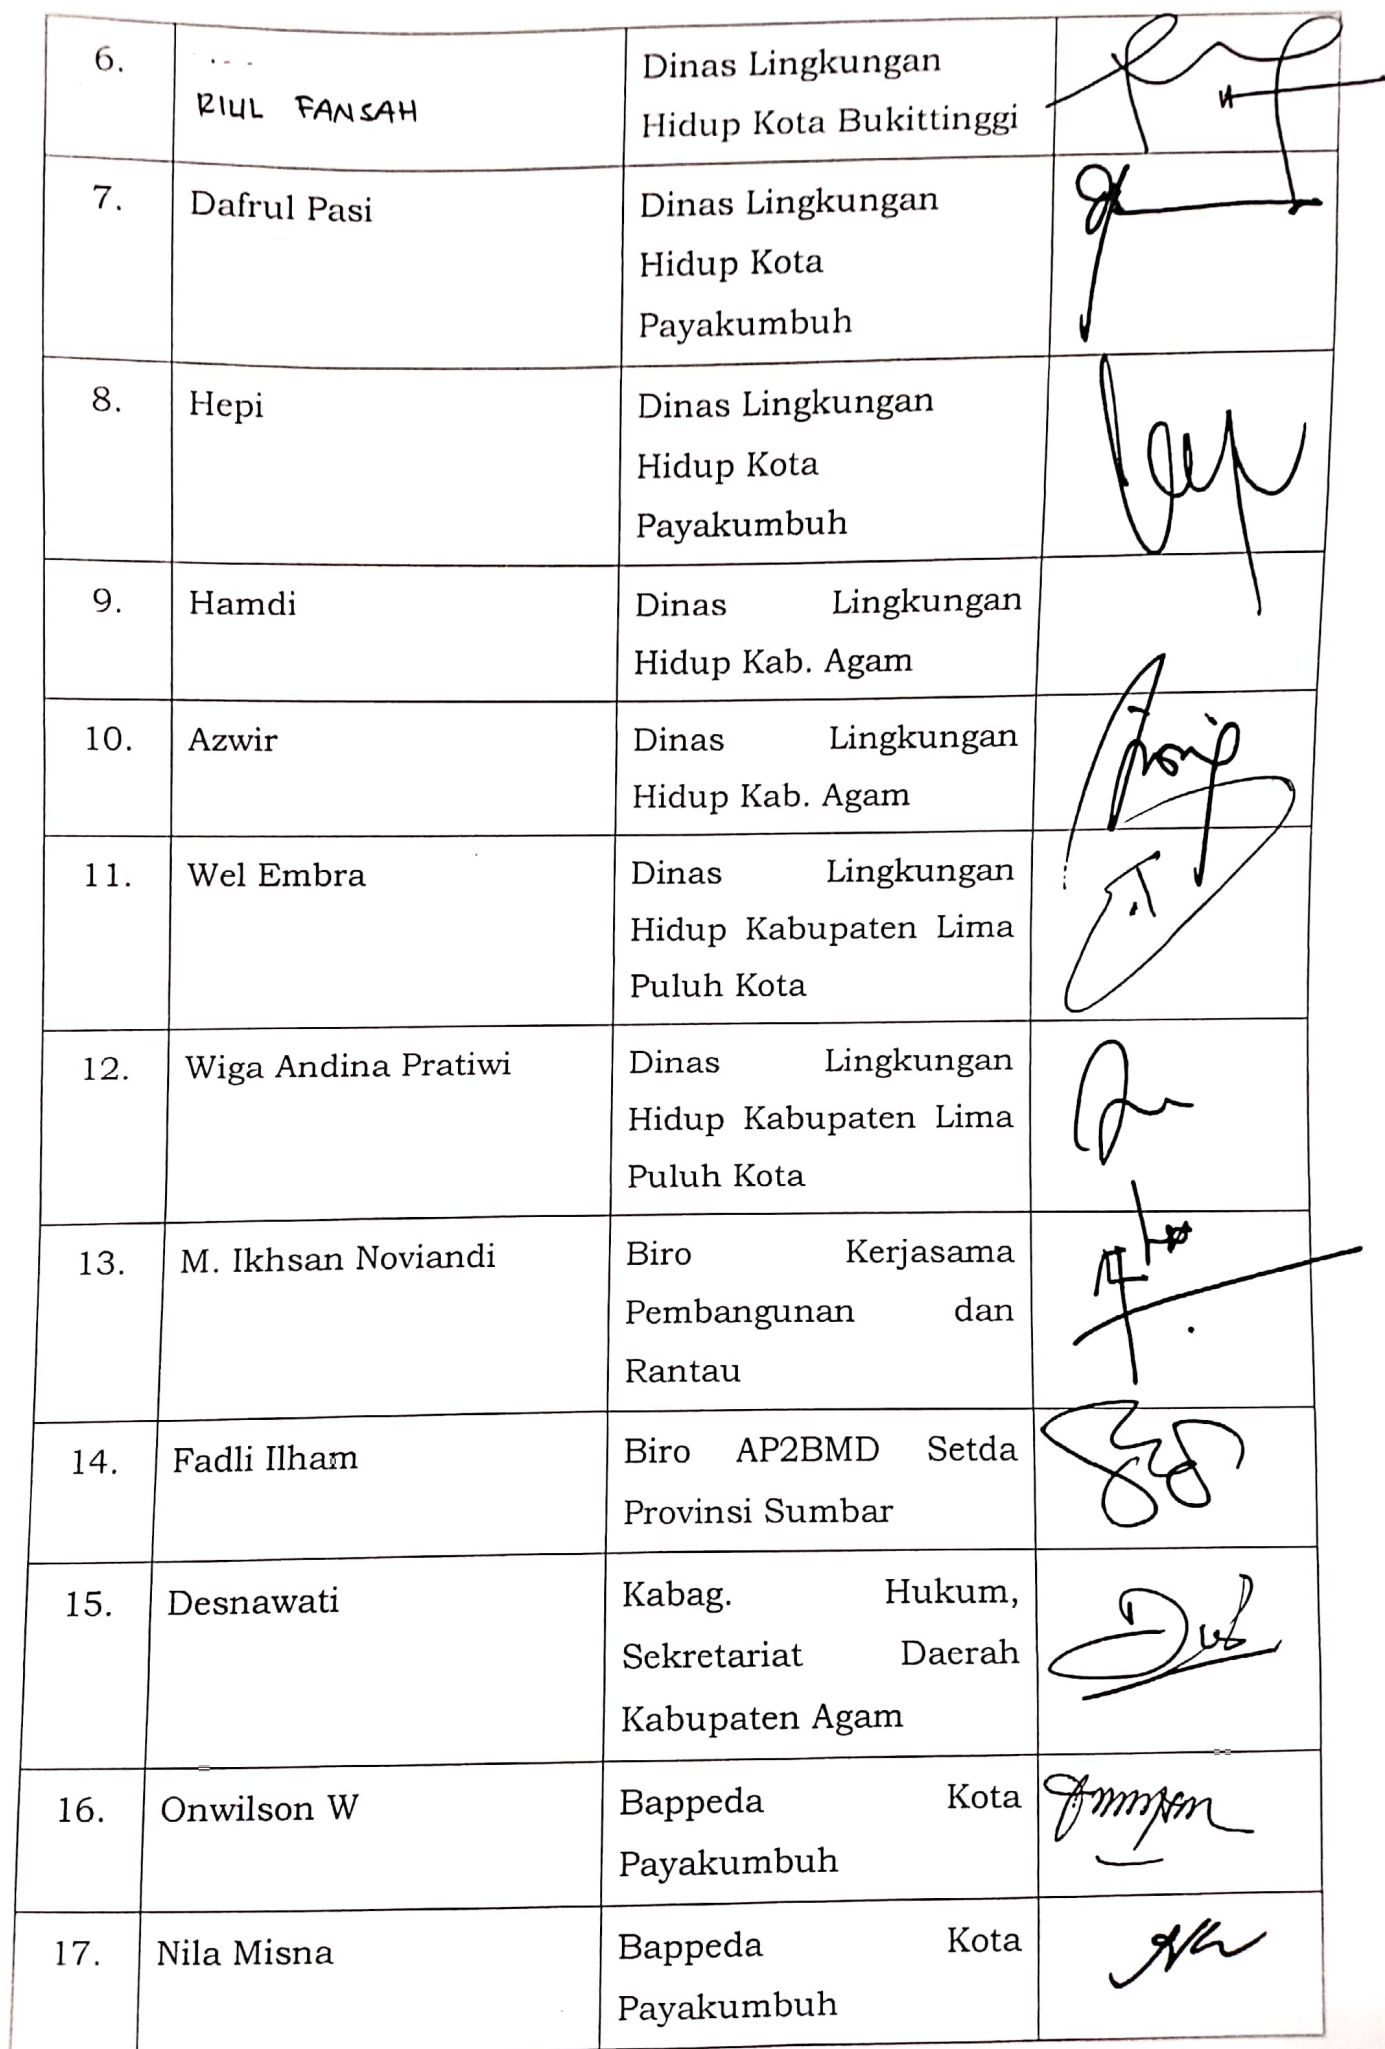 6.
. . .
RIUL FANSAH
Dinas Lingkungan
Hidup Kota Bukittinggi
7.
Dafrul Pasi
Dinas Lingkungan
Hidup Kota
Payakumbuh
8.
Hepi
Dinas Lingkungan
Hidup Kota
Payakumbuh
9.
Hamdi
Dinas Lingkungan
Hidup Kab. Agam
10.
Azwir
Dinas Lingkungan
Hidup Kab. Agam
11.
Wel Embra
Dinas Lingkungan
Hidup Kabupaten Lima
Puluh Kota
12.
Wiga Andina Pratiwi
Dinas Lingkungan
Hidup Kabupaten Lima
Puluh Kota
13.
M. Ikhsan Noviandi
Biro Kerjasama
Pembangunan dan
Rantau
14.
Fadli Ilham
Biro AP2BMD Setda
Provinsi Sumbar
15.
Desnawati
Kabag. Hukum,
Sekretariat Daerah
Kabupaten Agam
16.
Onwilson W
Bappeda Kota
Payakumbuh
17.
Nila Misna
Bappeda Kota
Payakumbuh